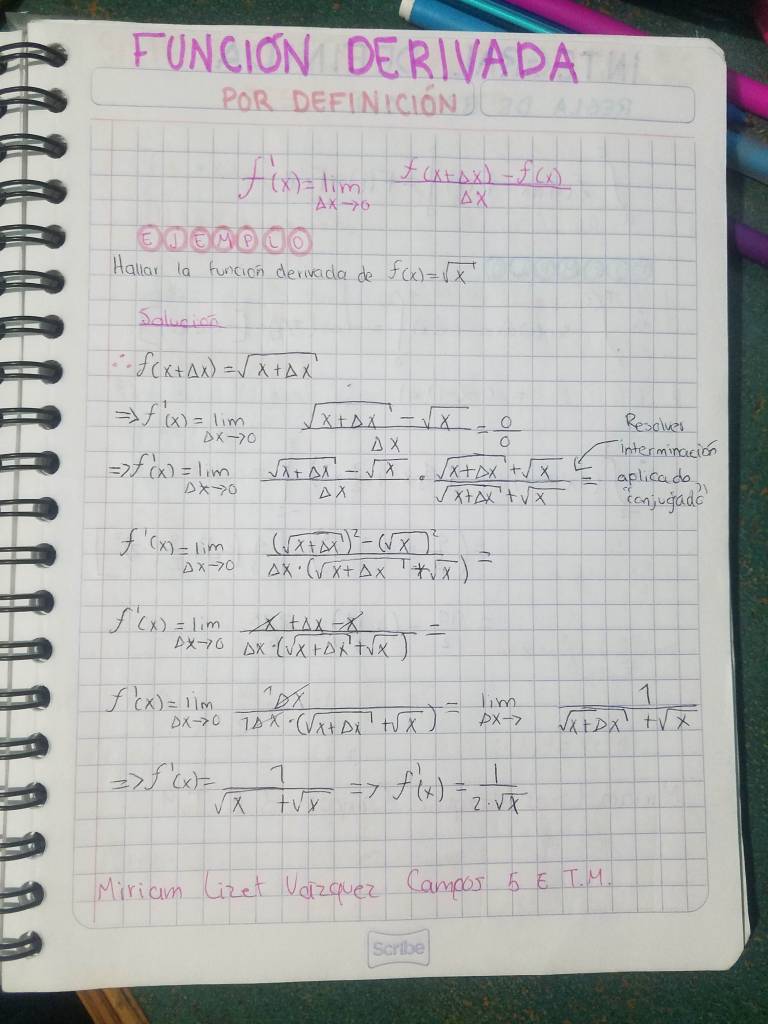 FUNCIÓN DERIVADA
POR DEFINICIÓN
f'(x) = lim Δx→0 f(x+Δx) - f(x) / Δx
EJEMPLO
Hallar la función derivada de f(x)=√x
Solución
∴ f(x+Δx) = √x+Δx
=> f'(x) = lim Δx→0 √x+Δx - √x / Δx = 0/0
=> f'(x) = lim Δx→0 √x+Δx - √x / Δx · √x+Δx + √x / √x+Δx + √x =
Resolver
interminación
aplicado
"conjugado"
f'(x) = lim Δx→0 (√x+Δx)² - (√x)² / Δx·(√x+Δx + √x) =
f'(x) = lim Δx→0 x + Δx - x / Δx·(√x+Δx + √x) =
f'(x) = lim Δx→0 1Δx / 1Δx·(√x+Δx + √x) = lim Δx→ 1 / √x+Δx + √x
=> f'(x) = 1 / √x + √x => f'(x) = 1 / 2·√x
Miriam Lizet Vázquez Campos 5 E T.M.
Scribe